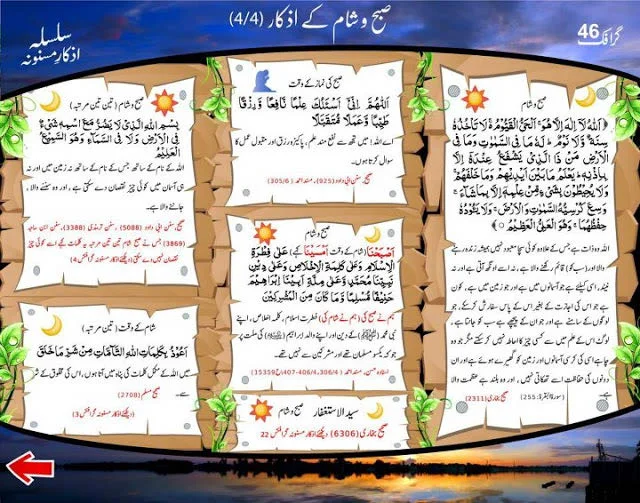 صبح و شام کے اذکار (4/4)
گرافک 46
سلسلہ
اذکارِ مسنونہ
صبح و شام
اَللّٰهُ لَآ اِلٰهَ اِلَّا هُوَ ۚ اَلْحَيُّ الْقَيُّوْمُ ۚ لَا تَاْخُذُهٗ
سِنَةٌ وَّلَا نَوْمٌ ۭ لَهٗ مَا فِي السَّمٰوٰتِ وَمَا فِي
الْاَرْضِ ۭ مَنْ ذَا الَّذِيْ يَشْفَعُ عِنْدَهٗٓ اِلَّا
بِاِذْنِهٖ ۭ يَعْلَمُ مَا بَيْنَ اَيْدِيْهِمْ وَمَا خَلْفَھُمْ ۚ
وَلَا يُحِيْطُوْنَ بِشَيْءٍ مِّنْ عِلْمِهٖٓ اِلَّا بِمَا شَاۗءَ ۚ
وَسِعَ كُرْسِيُّهُ السَّمٰوٰتِ وَالْاَرْضَ ۚ وَلَا يَـــــُٔـــوْدُهٗ
حِفْظُهُمَا ۚ وَھُوَ الْعَلِيُّ الْعَظِيْمُ
اللہ وہ ذات ہے جس کے علاوہ کوئی سچا معبود نہیں ہمیشہ زندہ رہنے
والا اور (سب کو) قائم رکھنے والا ہے، نہ اسے اونگھ آتی ہے اور نہ
نیند، اسی کیلئے ہے جو آسمانوں میں ہے اور جو زمین میں ہے، کون
ہے جو اس کی اجازت کے بغیر اس کے پاس سفارش کر سکے، جو
لوگوں کے سامنے ہے اور جو اس کے پیچھے ہے سب کو جانتا ہے،
لوگ اس کے علم میں سے کسی چیز کا احاطہ نہیں کر سکتے مگر جو وہ
چاہے اسی کی کرسی آسمانوں اور زمین کو گھیرے ہوئے ہے اور ان
دونوں کی حفاظت اسے تھکاتی نہیں، اور وہ بلند ہے عظمت والا
ہے۔ (سورۃ البقرۃ: 255) صحیح بخاری (2311)
صبح کی نماز کے وقت
اَللّٰهُمَّ اِنِّیْ اَسْئَلُكَ عِلْمًا نَافِعًا وَّرِزْقًا
طَيِّبًا وَّعَمَلًا مُّتَقَبَّلًا
اے اللہ! میں تجھ سے نفع مند علم، پاکیزہ رزق اور مقبول عمل کا
سوال کرتا ہوں۔
صحیح، سنن ابی داود (925)، مسند احمد (305/6)
صبح و شام
اَصْبَحْنَا (شام کے وقت اَمْسَيْنَا کہے) عَلٰى فِطْرَةِ
الْاِسْلَامِ وَعَلٰى كَلِمَةِ الْاِخْلَاصِ وَعَلٰى دِيْنِ
نَبِيِّنَا مُحَمَّدٍ وَّعَلٰى مِلَّةِ اَبِيْنَا اِبْرَاهِيْمَ
حَنِيْفًا مُّسْلِمًا وَّمَا كَانَ مِنَ الْمُشْرِكِيْنَ
ہم نے صبح کی (ہم نے شام کی) فطرتِ اسلام، کلمہ اخلاص، اپنے
نبی محمد (ﷺ) کے دین اور اپنے والد ابراہیم (علیہ السلام) کی ملت پر
جو کہ یکسو مسلمان تھے اور مشرکین سے نہیں تھے۔
اسنادہ حسن، مسند احمد (306/4، 406-407/ح15359)
صبح و شام سید الاستغفار
صحیح بخاری (6306) دیکھئے اذکار مسنونہ گرافکس 22
صبح و شام (تین تین مرتبہ)
بِسْمِ اللّٰهِ الَّذِيْ لَا يَضُرُّ مَعَ اسْمِهٖ شَيْءٌ
فِي الْاَرْضِ وَلَا فِي السَّمَآءِ وَهُوَ السَّمِيْعُ
الْعَلِيْمُ
اللہ کے نام کے ساتھ، جس کے نام کے ساتھ نہ زمین میں اور نہ
ہی آسمان میں کوئی چیز نقصان دے سکتی ہے، اور وہ سننے والا،
جاننے والا ہے۔
صحیح، سنن ابی داود (5088)، سنن ترمذی (3388)، سنن ابن ماجہ
(3869) جس نے صبح شام تین تین مرتبہ یہ کلمات کہے اسے کوئی چیز
نقصان نہیں دے سکتی (دیکھئے اذکار مسنونہ گرافکس 4)
شام کے وقت (تین مرتبہ)
اَعُوْذُ بِكَلِمَاتِ اللّٰهِ التَّامَّاتِ مِنْ شَرِّ مَا خَلَقَ
میں اللہ کے مکمل کلمات کی پناہ میں آتا ہوں، اس کی مخلوق کے شر
سے۔
صحیح مسلم (2708)
(دیکھئے اذکار مسنونہ گرافکس 3)